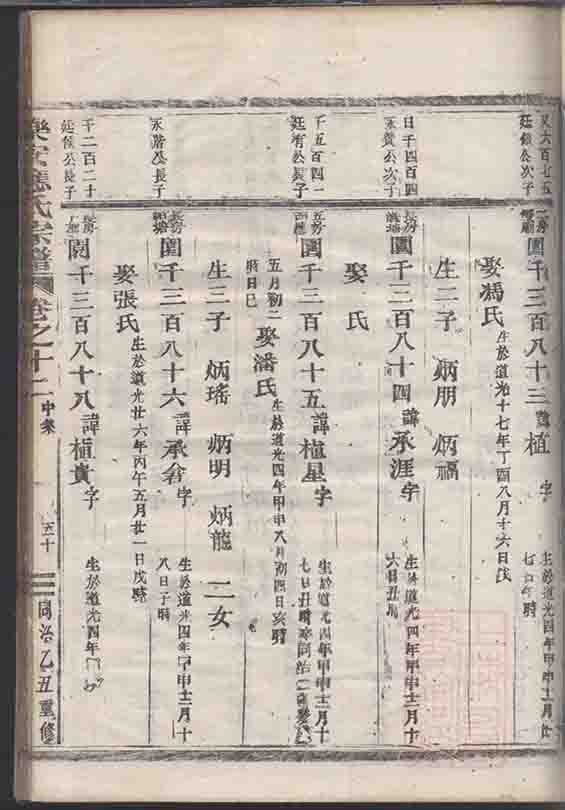 又六百七五
廷候公次子
二房
圓千三百八十三諱植 字 生於道光四年甲申十二月廿七日 時
娶馮氏 生於道光十七年丁酉八月十六日戌
生二子 炳朋 炳福
日千四百四
永贊公次子
長房
圓千三百八十四諱承涯字 生於道光四年甲申十二月十六日丑時
娶 氏
千五百四一
廷宥公長子
五房
圓千三百八十五諱植星字 生於道光四年甲申十二月十七日丑時卒同治二年癸亥
五月初二時日巳 娶潘氏 生於道光四年甲申八月初四日亥時
生三子 炳瑤 炳明 炳龍 二女
永階公長子
長房
圓千三百八十六諱承爻字 生於道光四年甲申十二月十八日子時
娶張氏 生於道光廿六年丙午五月廿一日戌時
千二百二十
廷候公長子
長房
圓千三百八十八諱植貴字 生於道光四年
樂安 氏宗譜 卷之十二 中集 五十 同治乙丑重修